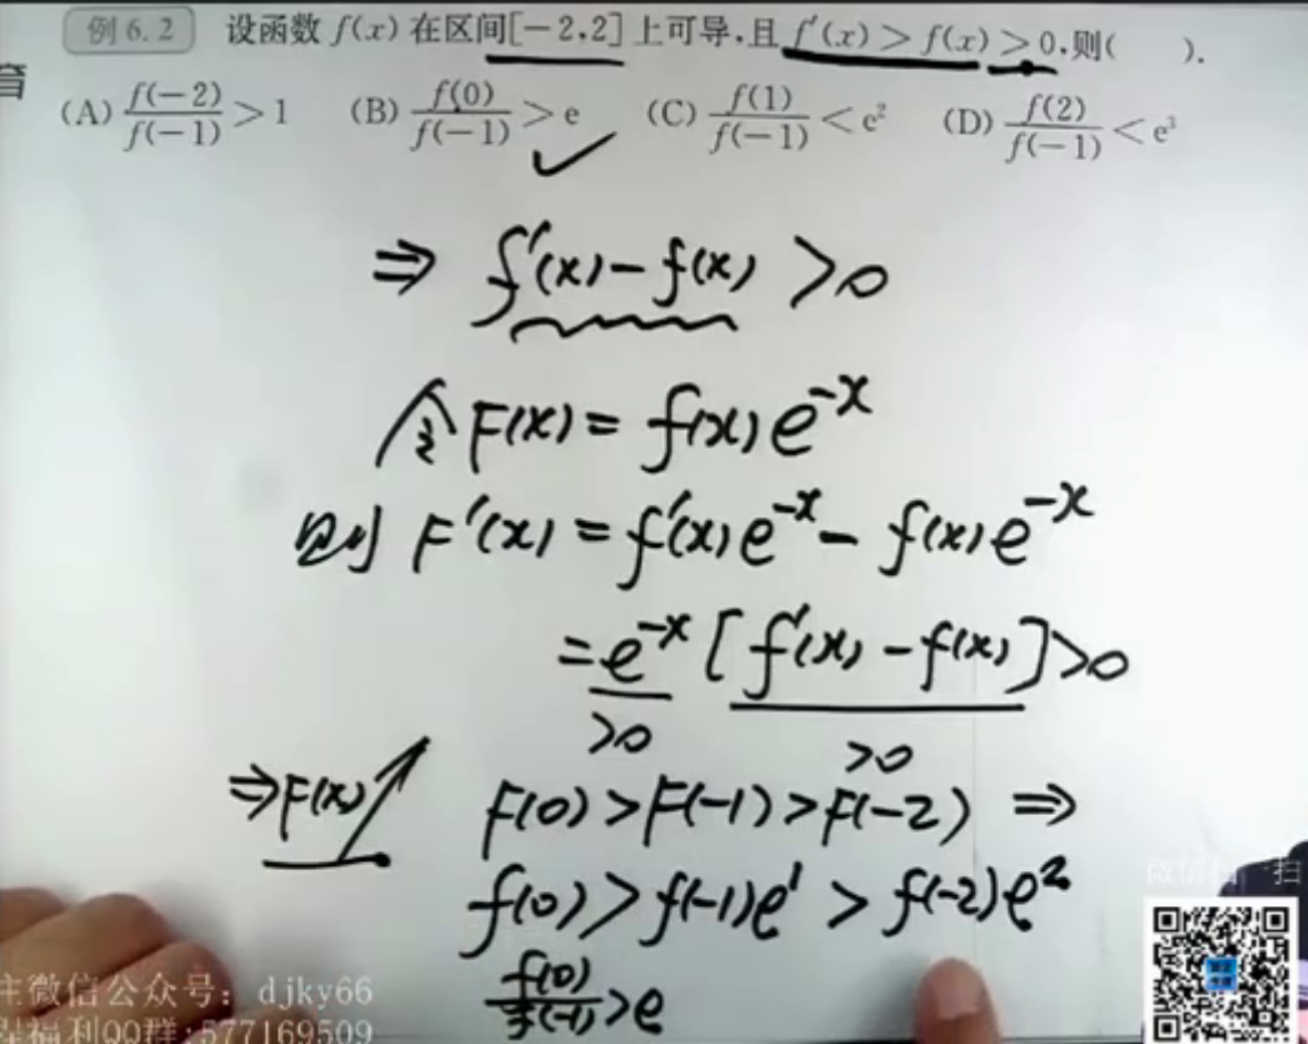 例 6.2 设函数 f(x) 在区间[-2,2]上可导,且 f′(x)>f(x)>0,则( ).
育
(A) f(-2)/f(-1) > 1 (B) f(0)/f(-1) > e (C) f(1)/f(-1) < e² (D) f(2)/f(-1) < e³
⇒ f′(x)-f(x) >0
令 F(x) = f(x)e^{-x}
则 F′(x) = f′(x)e^{-x} - f(x)e^{-x}
= e^{-x} [f′(x) - f(x)] >0
>0 >0
⇒F(x)↗ F(0)>F(-1)>F(-2) ⇒
f(0) > f(-1)e¹ > f(-2)e²
f(0)/f(-1) > e
微信扫一扫
主微信公众号: djky66
福利QQ群:577169509